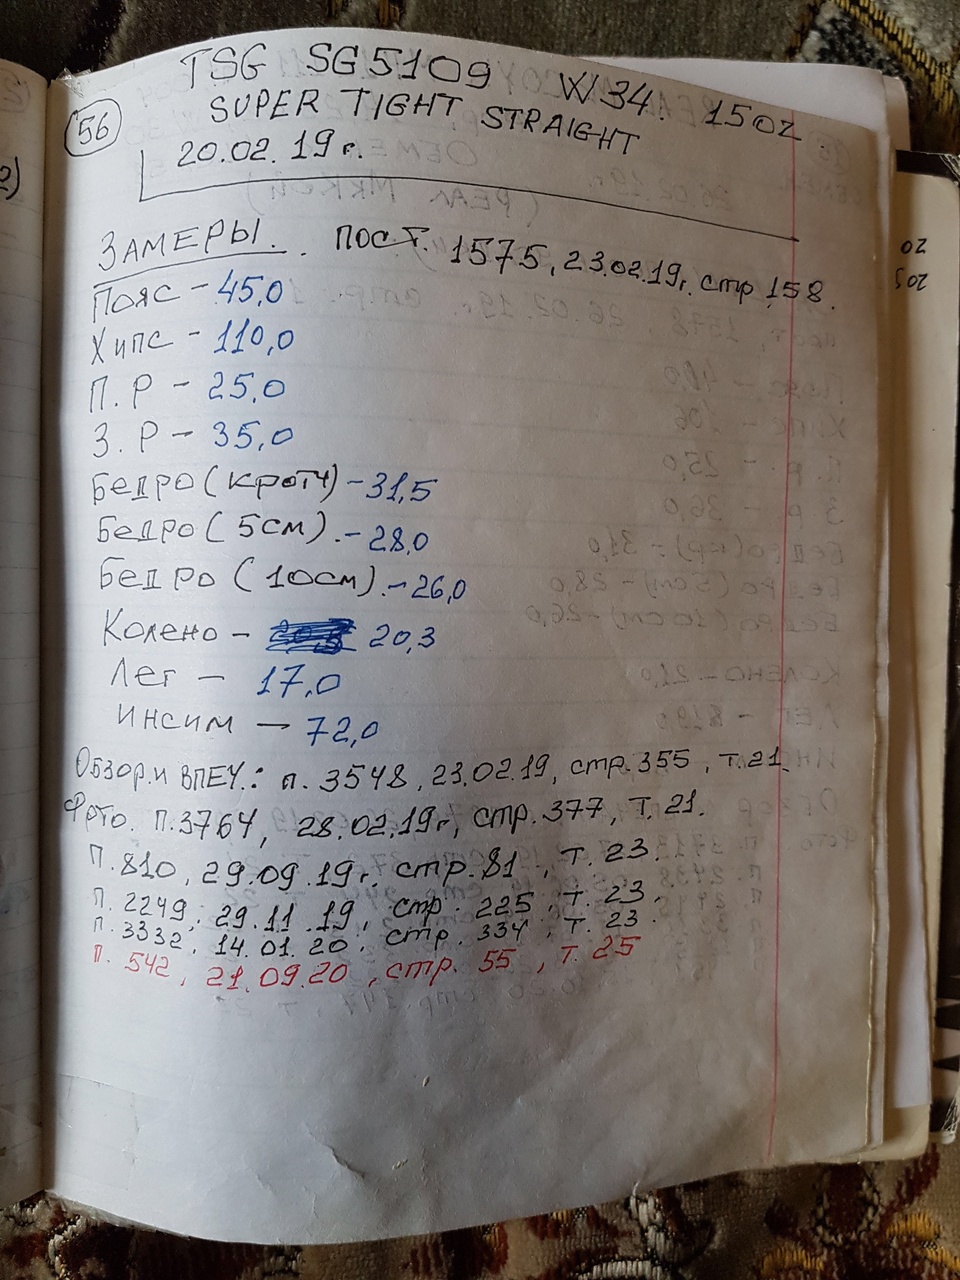 TSG SG5109 W34. 15oz.
56
SUPER TIGHT STRAIGHT
20.02.19г.
ЗАМЕРЫ. ПОСТ. 1575, 23.02.19г. стр 158.
Пояс - 45,0
Хипс - 110,0
П.Р - 25,0
З.Р - 35,0
Бедро (кротч) - 31,5
Бедро (5см). - 28,0
Бедро (10см). - 26,0
Колено - 20,3
Лег - 17,0
инсим - 72,0
Обзор.и ВПЕЧ.: п. 3548, 23.02.19, стр. 355, т.21.
Фото. П.3764, 28.02.19г, стр. 377, Т.21.
П.810, 29.09.19г. стр. 81, Т. 23.
П. 2249, 29.11.19, стр. 225, т. 23.
П. 3332, 14.01.20, стр. 334, т. 23.
П. 542, 21.09.20, стр. 55, т. 25